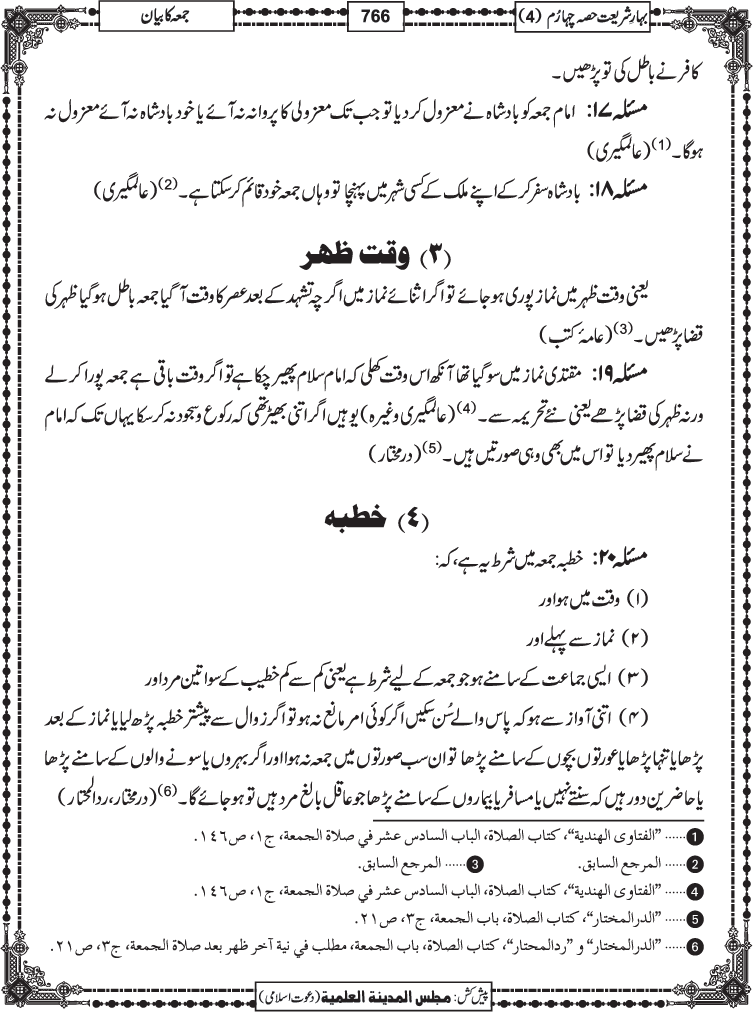 بہارِ شریعت حصہ چہارم (4)
766
جمعہ کا بیان
کافر نے باطل کی تو پڑھیں۔
مسئلہ ۱۷: امام جمعہ کو بادشاہ نے معزول کر دیا تو جب تک معزولی کا پروانہ نہ آئے یا خود بادشاہ نہ آئے معزول نہ
ہوگا۔(1) (عالمگیری)
مسئلہ ۱۸: بادشاہ سفر کر کے اپنے ملک کے کسی شہر میں پہنچا تو وہاں جمعہ خود قائم کر سکتا ہے۔(2) (عالمگیری)
(۳) وقت ظهر
یعنی وقت ظہر میں نماز پوری ہو جائے تو اگر اثنائے نماز میں اگرچہ تشہد کے بعد عصر کا وقت آگیا جمعہ باطل ہو گیا ظہر کی
قضا پڑھیں۔(3) (عامۂ کتب)
مسئلہ ۱۹: مقتدی نماز میں سوگیا تھا آنکھ اس وقت کھلی کہ امام سلام پھیر چکا ہے تو اگر وقت باقی ہے جمعہ پورا کر لے
ورنہ ظہر کی قضا پڑھے یعنی نئے تحریمہ سے۔(4) (عالمگیری وغیرہ) یوہیں اگر اتنی بھیڑ تھی کہ رکوع و سجود نہ کر سکا یہاں تک کہ امام
نے سلام پھیر دیا تو اس میں بھی وہی صورتیں ہیں۔(5) (درمختار)
(٤) خطبه
مسئلہ ۲۰: خطبہ جمعہ میں شرط یہ ہے، کہ:
(۱) وقت میں ہو اور
(۲) نماز سے پہلے اور
(۳) ایسی جماعت کے سامنے ہو جو جمعہ کے لیے شرط ہے یعنی کم سے کم خطیب کے سوا تین مرد اور
(۴) اتنی آواز سے ہو کہ پاس والے سُن سکیں اگر کوئی امر مانع نہ ہو تو اگر زوال سے پیشتر خطبہ پڑھ لیا یا نماز کے بعد
پڑھا یا تنہا پڑھا یا عورتوں بچوں کے سامنے پڑھا تو ان سب صورتوں میں جمعہ نہ ہوا اور اگر بہروں یا سونے والوں کے سامنے پڑھا
یا حاضرین دور ہیں کہ سنتے نہیں یا مسافر یا بیماروں کے سامنے پڑھا جو عاقل بالغ مرد ہیں تو ہو جائے گا۔(6) (درمختار، ردالمحتار)
1 ...... ”الفتاوى الهندية“، كتاب الصلاة، الباب السادس عشر في صلاة الجمعة، ج١، ص١٤٦.
2 ...... المرجع السابق. 3 ...... المرجع السابق.
4 ...... ”الفتاوى الهندية“، كتاب الصلاة، الباب السادس عشر في صلاة الجمعة، ج١، ص١٤٦.
5 ...... ”الدرالمختار“، كتاب الصلاة، باب الجمعة، ج٣، ص٢١.
6 ...... ”الدرالمختار“ و ”ردالمحتار“، كتاب الصلاة، باب الجمعة، مطلب في نية آخر ظهر بعد صلاة الجمعة، ج٣، ص٢١.
پیش کش: مجلس المدينة العلمية (دعوت اسلامی)